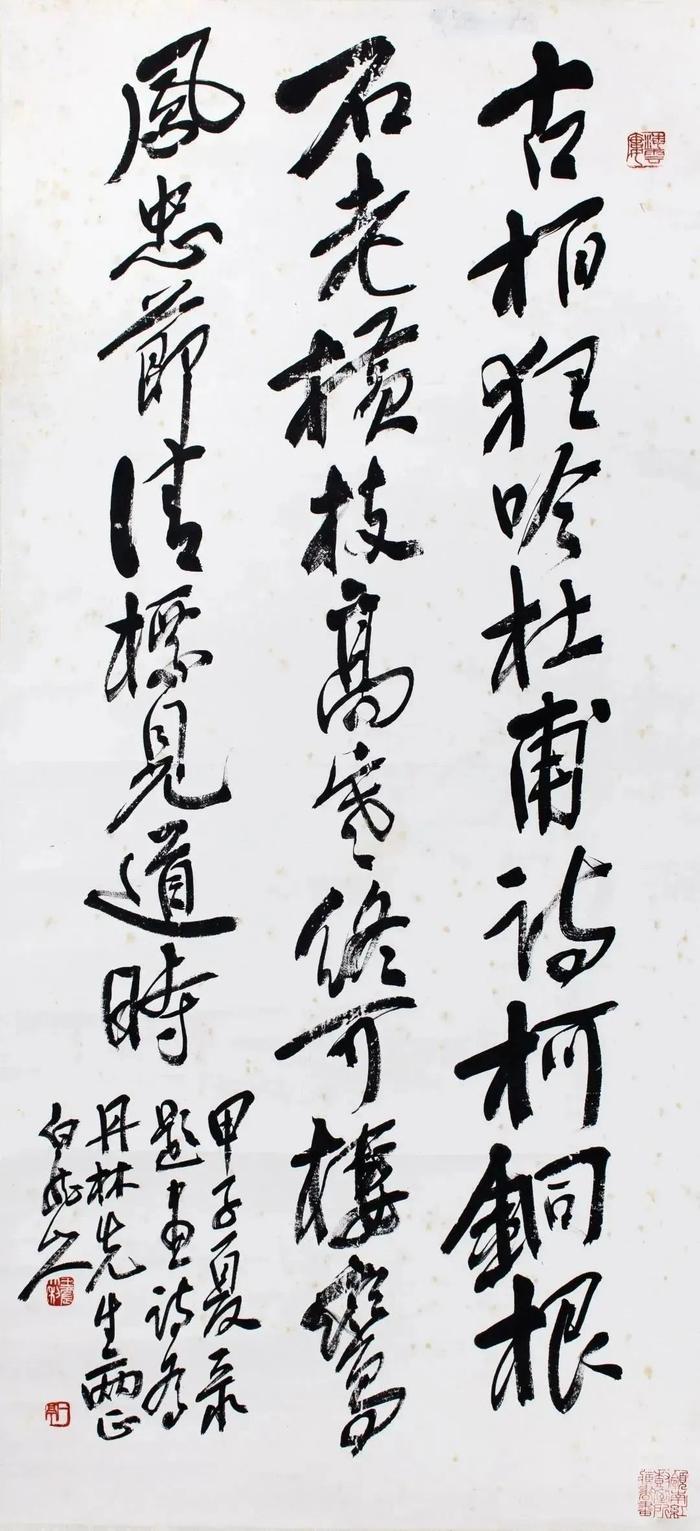 古柏狂吟杜甫詩柯銅根
石老橫枝高寒終可棲鸞
鳳忠節清標見道時
甲子夏录
題畫詩為
丹林先生兩正